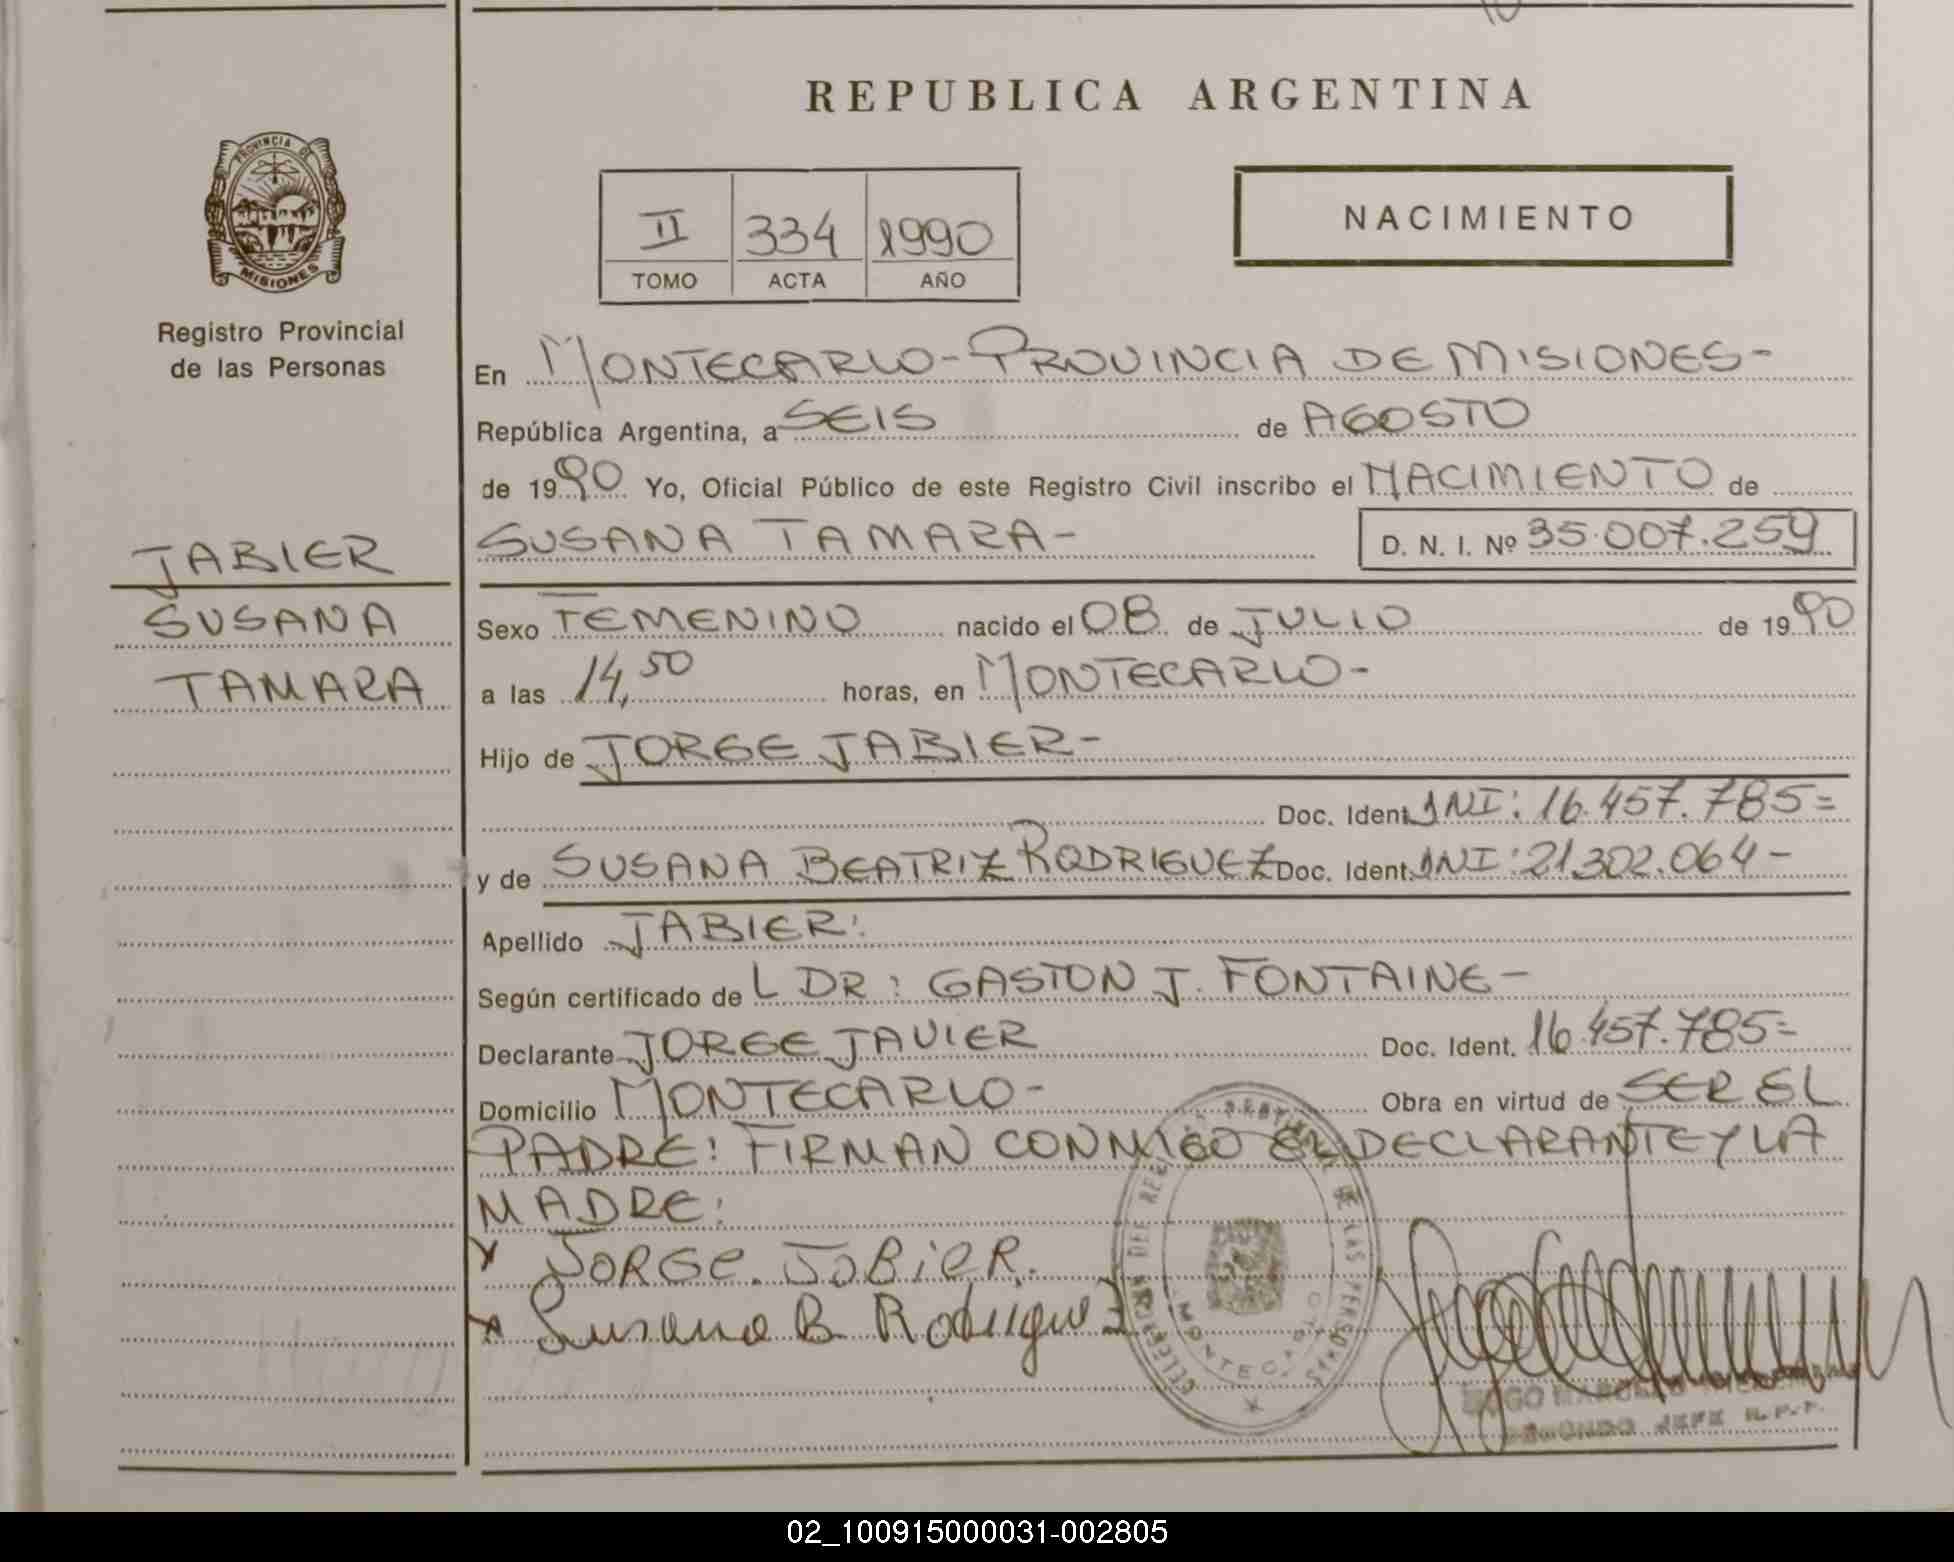 REPUBLICA ARGENTINA
PROVINCIA DE
MISIONES
Registro Provincial
de las Personas
II 334 1990
TOMO ACTA AÑO
NACIMIENTO
En MONTECARLO-PROVINCIA DE MISIONES-
República Argentina, a SEIS de AGOSTO
de 1990 Yo, Oficial Público de este Registro Civil inscribo el NACIMIENTO de
SUSANA TAMARA- D. N. I. Nº 35.007.259
JABIER
SUSANA
TAMARA
Sexo FEMENINO nacido el 08 de JULIO de 1990
a las 14,50 horas, en MONTECARLO-
Hijo de JORGE JABIER-
Doc. Ident. DNI: 16.457.785=
y de SUSANA BEATRIZ RODRIGUEZ Doc. Ident. DNI: 21.302.064-
Apellido JABIER:
Según certificado de L DR: GASTON J. FONTAINE-
Declarante JORGE JAVIER Doc. Ident. 16.457.785=
Domicilio MONTECARLO- Obra en virtud de SER EL
PADRE: FIRMAN CONMIGO EL DECLARANTE Y LA
MADRE:
x JORGE. JABIER.
x Susana B Rodriguez
DE LAS PERSONAS
MONTECARLO
SEGUNDO JEFE R.P.P.
02_100915000031-002805